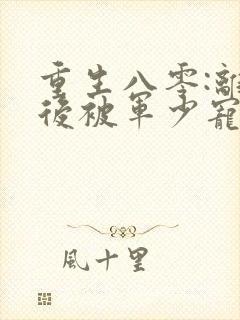 重生八零:離
後被軍少寵
風十里